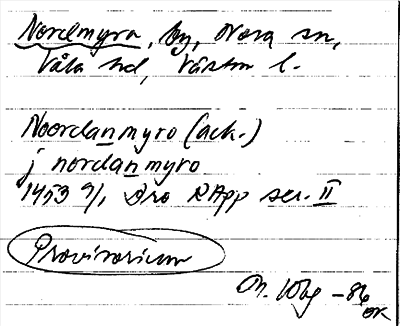 Nordmyra, by, Nora sn,
Våla hd, Västm l.
Noordanmyro (ack.)
j nordanmyro
1453 9/1 Dro RApp ser. II
Provisorium
M. Wbg -86